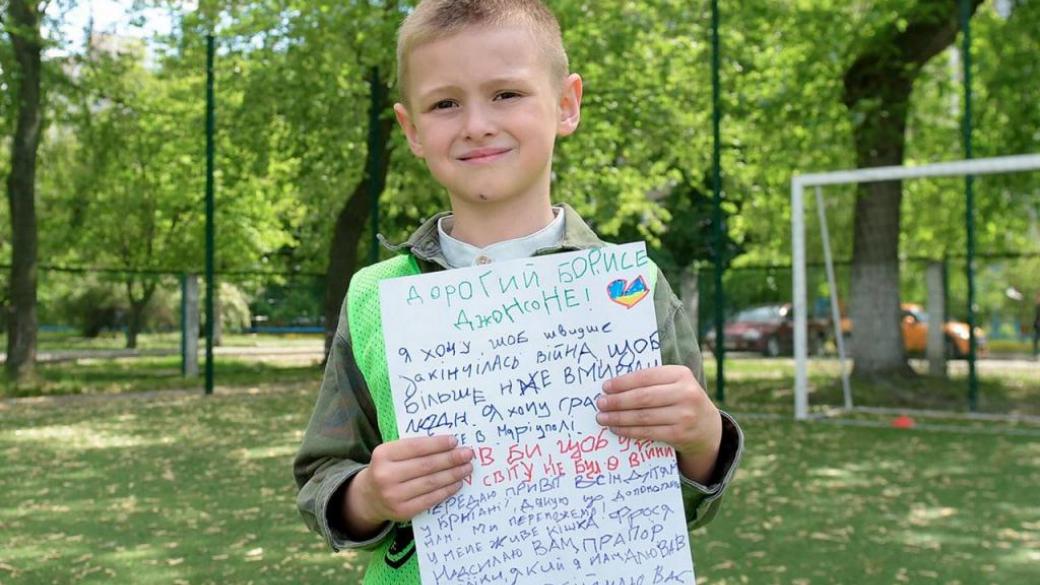 ДОРОГИЙ БОРИСЕ
ДЖОНСОНЕ!
Я ХОЧУ ЩОБ ШВИДШЕ
ЗАКІНЧІЛАСЬ ВІЙНА ЩОБ
БІЛЬШЕ НЕ
Я ХОЧУ
В Маріуполі.
БИ, ЩОБ
СВІТУ НЕ БУЛО ВІЙНИ
ПЕРЕДАЮ ПРИВІТ ВСІМ ДІТЯМ
У БРИТАНІЇ, ДЯКУЮ ЩО
НАМ. МИ ПЕРЕМОЖЕМО!
У МЕНЕ ЖИВЕ КІШКА ФРОСЯ
НАДСИЛАЮ ВАМ ПРАПОР
ЯКИЙ Я
ВАС